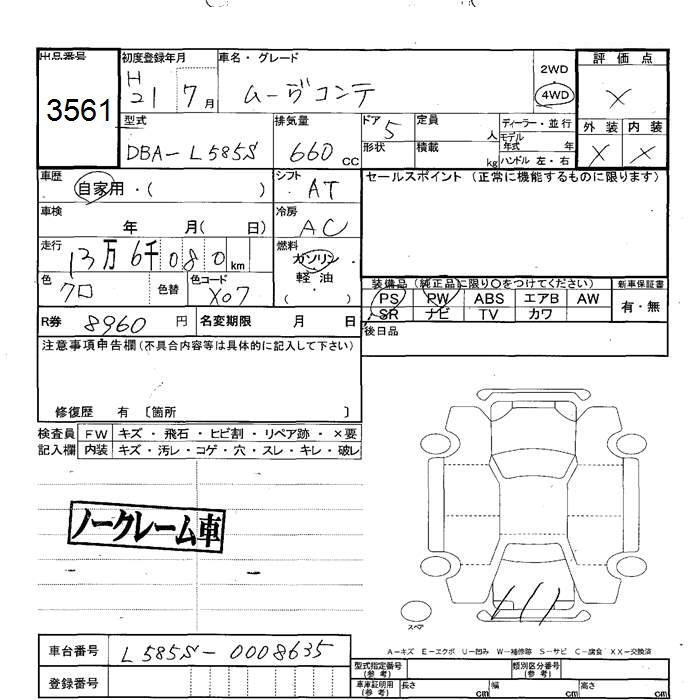 出品番号 初度登録年月 車名・グレード 評価点
3561 H21 7月 ムーヴコンテ 2WD 4WD X
型式 排気量 ドア 5 定員 人 ディーラー・並行 外装 内装
DBA-L585S 660cc 形状 積載 kg モデル年式 年 X X
ハンドル 左・右
車歴 自家用・( ) シフト AT セールスポイント (正常に機能するものに限ります)
車検 年 月( 日) 冷房 AC
走行 13万6千080km 燃料 ガソリン
軽油
( )
色 クロ 色替 色コード X07 装備品 (純正品に限り○をつけてください) 新車保証書
PS PW ABS エアB AW 有・無
SR ナビ TV カワ
R券 8960円 名変期限 月 日 後日品
注意事項申告欄(不具合内容等は具体的に記入して下さい)
修復歴 有 〔箇所 〕
検査員 FW キズ・飛石・ヒビ割・リペア跡・×要
記入欄 内装 キズ・汚レ・コゲ・穴・スレ・キレ・破レ
ノークレーム車
スペア
A-キズ E-エクボ U-凹み W-補修跡 S-サビ C-腐食 XX-交換済
車台番号 L585S-0008635
型式指定番号(参考) 類別区分番号(参考)
登録番号 車庫証明用(参考) 長さ cm 幅 cm 高さ cm